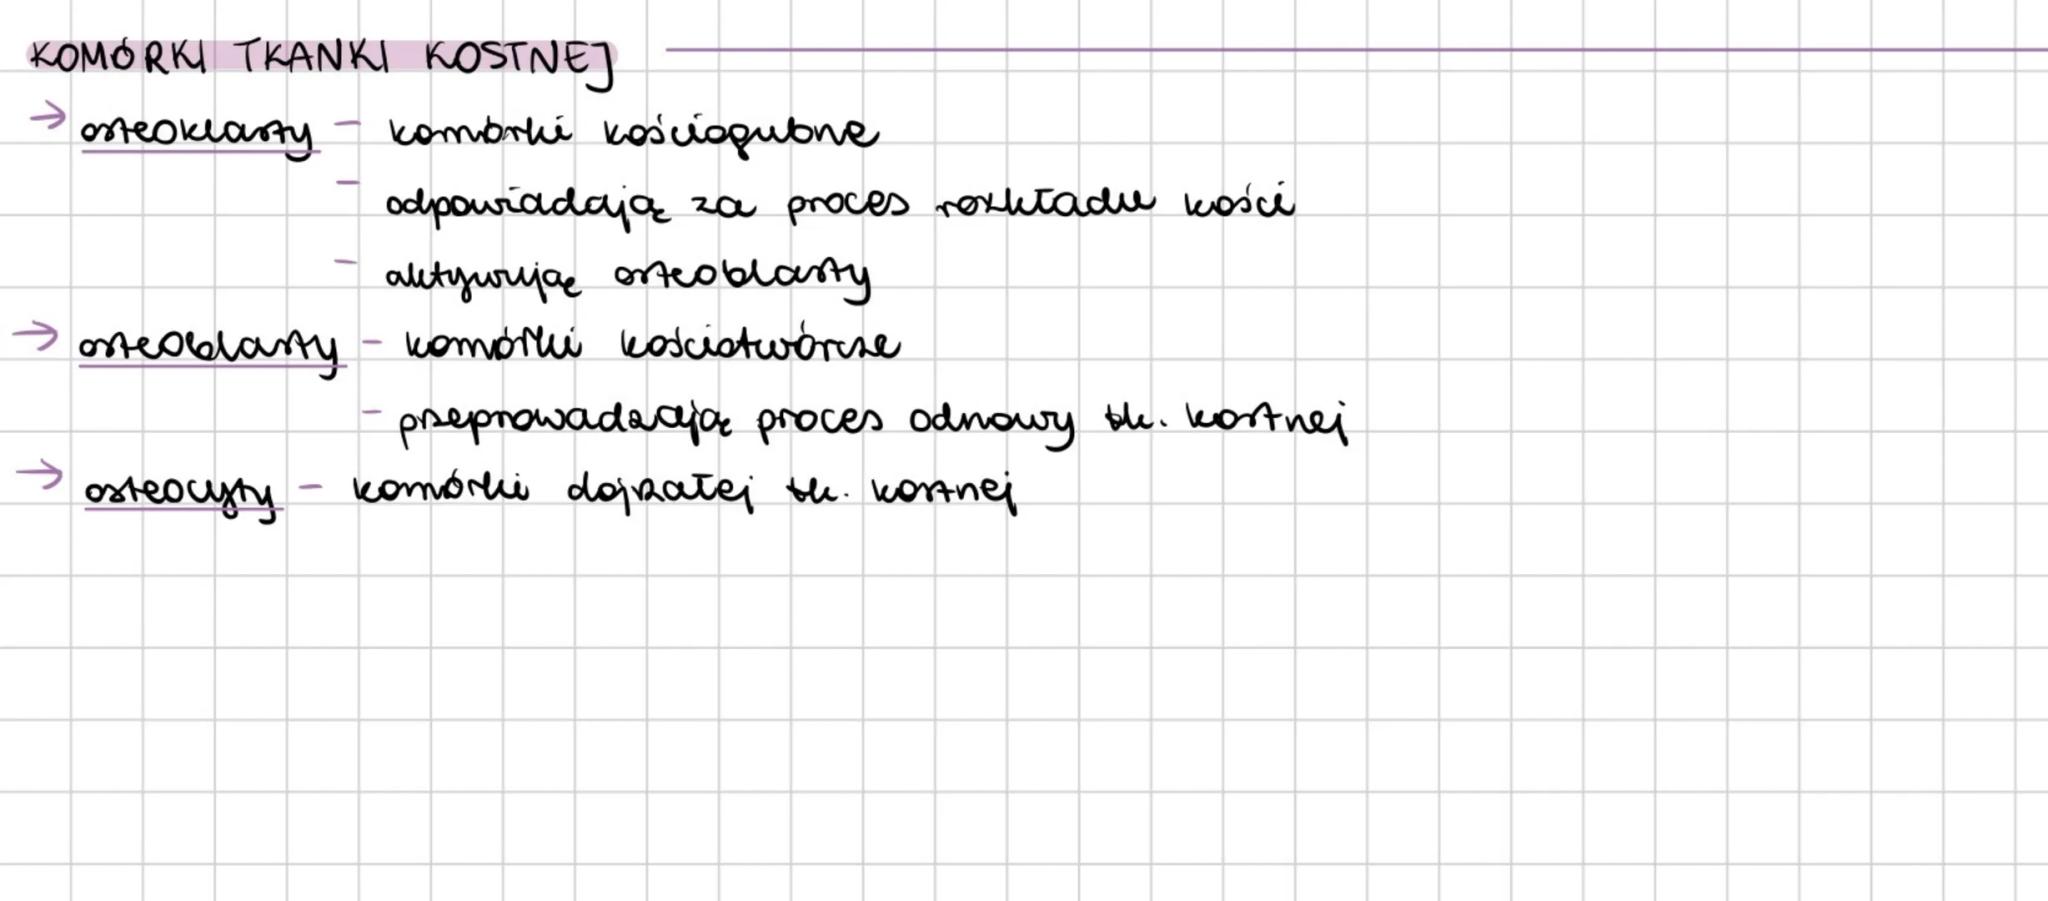 KOMÓRKI TKANKI KOSTNEJ
→ osteoklasty - komórki kościogubne
- odpowiadają za proces rozkładu kości
- aktywują osteoblasty
→ osteoblasty - komórki kościotwórcze
- przeprowadzają proces odnowy tk. kostnej
→ osteocyty - komórki dojrzałej tk. kostnej